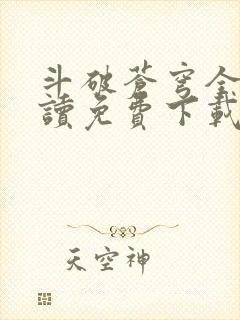 斗破蒼穹全
讀免費下載
天空神